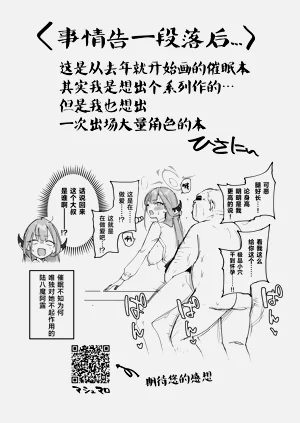 <事情告一段落后…>
这是从去年就开始画的催眠本
其实我是想出个系列作的…
但是我也想出
一次出场大量角色的本
ひさにぃ
可恶
腿好长!
论身高
明明是我
更高的说!
看我这么
给你这个
极品小穴
干到怀孕!
这是在…
做爱…!?
这就是
在做爱吧…!?
话说回来
这个大叔
是谁啊!?
催眠不知为何
唯独对她不起作用的
陆八魔阿露
マシュマロ
期待您的感想